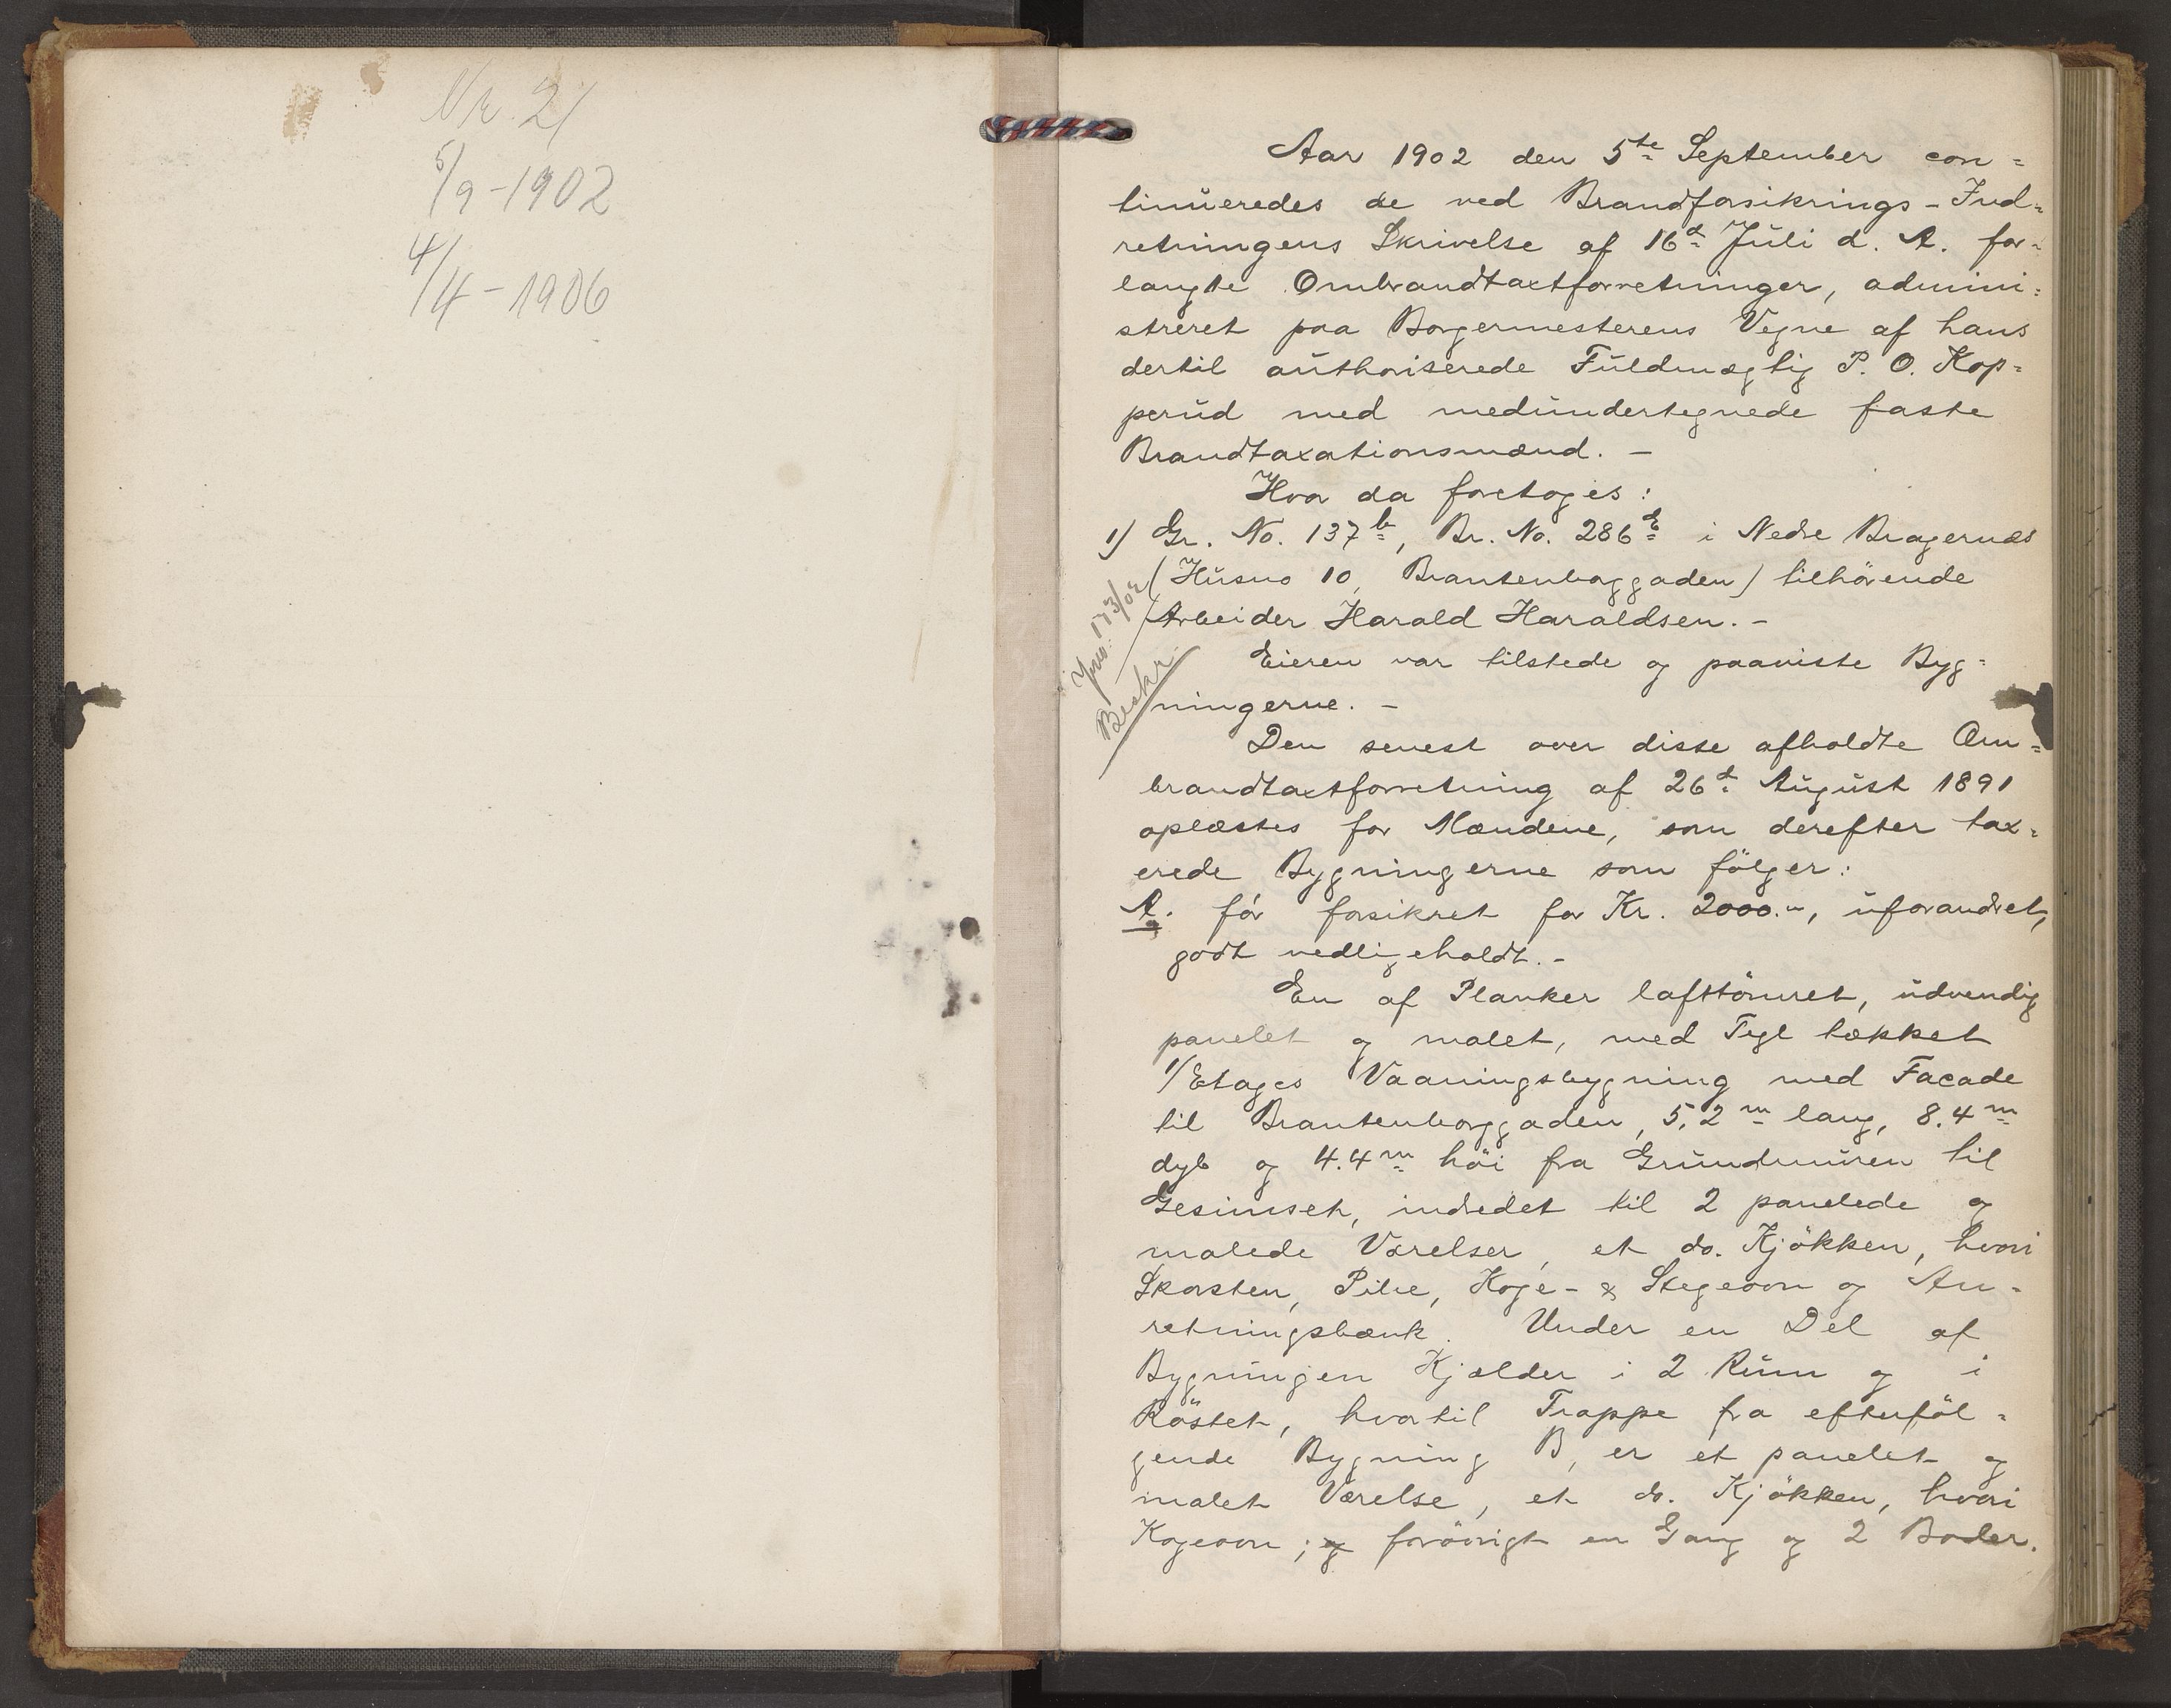 Nr. 21
5/9-1902
4/4-1906
Aar 1902 den 5te September con=
tinueredes de ved Brandforsikrings-Ind=
retningens Skrivelse af 16d Juli d. A. for=
langte Ombrandtaxtforretninger, admini=
streret paa Borgermesterens Vegne af hans
dertil authoriserede Fuldmægtig P. O. Kop=
perud med medundertegnede faste
Brandtaxationsmænd. -
Hvor da foretoges:
1) Gr. No. 137b, Br. No. 286E i Nedre Bragernæs
(Husno 10, Brantenborggaden) tilhörende
Arbeider Harald Haraldsen. -
Jno. 173/02
Beskr.
Eieren var tilstede og paaviste Byg=
ningerne. -
Den senest over disse afholdte Om=
brandtaxtforretning af 26d August 1891
oplæstes for Mændene, som derefter tax=
erede Bygningerne som fölger:
A. för forsikret for Kr. 2000.-, uforandret,
godt vedligeholdt. -
En af Planker lafttömret, udvendig
panelet og malet, med Tegl tækket
1/Etages Vaaningsbygning med Facade
til Brantenborggaden, 5,2 m lang, 8.4 m
dyb og 4.4 m höi fra Grundmuren til
Gesimset, indredet til 2 panelede og
malede Værelser, et do. Kjökken, hvori
Skorsten, Pibe, Koge- & Stegeovn og An-
retningsbænk. Under en Del af
Bygningen Kjælder i 2 Rum og i
Röstet, hvortil Trappe fra efterföl-
gende Bygning B, er et panelet og
malet Værelse, et do. Kjökken, hvori
Kogeovn; og forövrigt en Gang og 2 Boder.